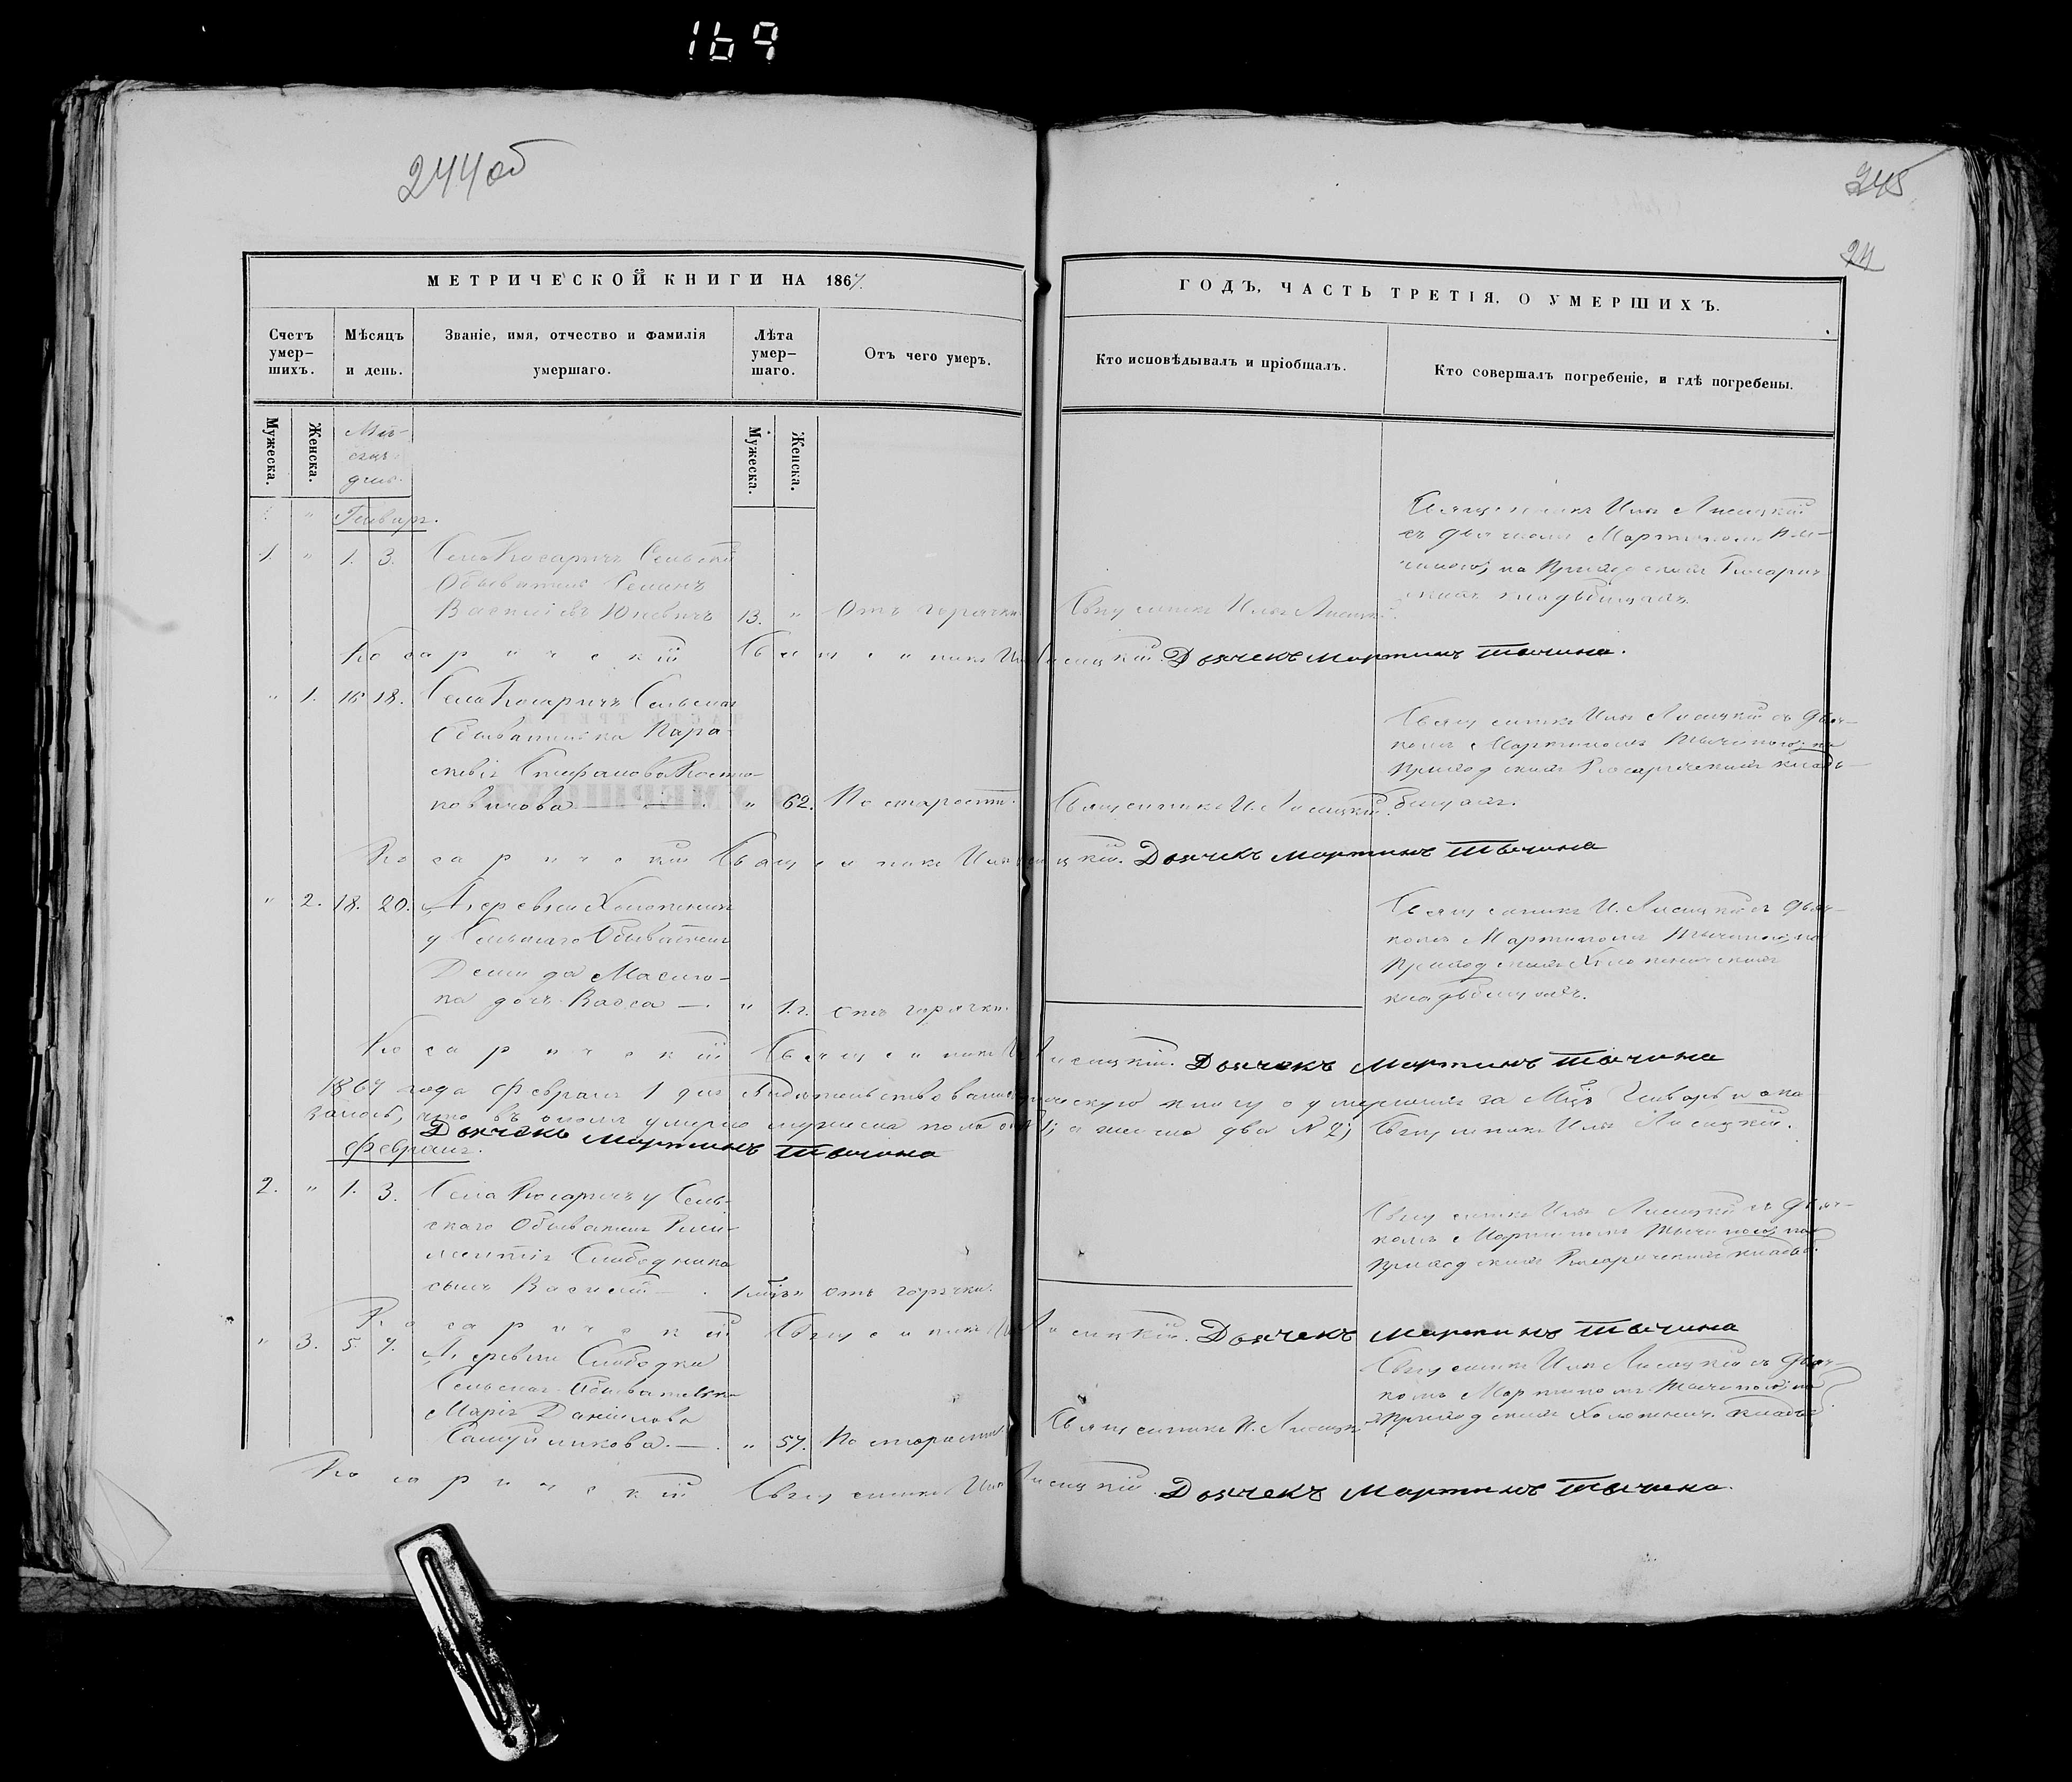 169
244 об
245
24
МЕТРИЧЕСКОЙ КНИГИ НА 1867
ГОДЪ, ЧАСТЬ ТРЕТІЯ, О УМЕРШИХЪ.
Счетъ умер-шихъ.
Мѣсяцъ и день.
Званіе, имя, отчество и фамилія умершаго.
Лѣта умер-шаго.
Отъ чего умеръ.
Кто исповѣдывалъ и пріобщалъ.
Кто совершалъ погребеніе, и гдѣ погребены.
Мужеска.
Женска.
Мужеска.
Женска.
Январь.
1 " 1. 3. Села Косаричъ Сельскій
Обыватель Семенъ
Василіевъ Юневичъ 13. " Отъ горячки Священникъ Илья Лисицкій
Священникъ Илья Лисицкій
съ дьячкомъ Мартиномъ
на Приходскомъ Косарич
кладбищахъ.
Косаричскій Священникъ Илья Лисицкій. Дьячекъ Мартинъ Тычина.
" 1. 16 18. Села Косаричъ Сельская
Обывателька Пара-
скевія
" 62. По старости Священникъ И. Лисицкій.
Священникъ Илья Лисицкій съ дьяч-
комъ Мартиномъ Тычиною, на
Приходскихъ Косаричскихъ кладъ-
бищахъ.
Косаричскій Священникъ Илья Лисицкій. Дьячекъ Мартинъ Тычина
" 2. 18. 20. Деревни
у Сельскаго Обывателя
Демида
дочь Васса — " 1 г. Отъ горячки.
Священникъ И. Лисицкій съ дьяч-
комъ Мартиномъ Тычиною, на
Приходскихъ
кладбищахъ.
Косаричскій Священникъ И. Лисицкій. Дьячекъ Мартинъ Тычина
1867 года Февраля 1 дня книгу о умершихъ за Мцъ Генварь и ока-
залось, что въ ономъ умерло мужеска пола 1; а женска два № 2; Священникъ Илья Лисицкій.
Дьячекъ Мартинъ Тычина
Февраль.
2. " 1. 3. Села Косаричъ у Сель-
скаго Обывателя Кли-
ментія Слободника
сынъ Василій — . 1 мцъ " Отъ горячки.
Священникъ Илья Лисицкій съ дьяч-
комъ Мартиномъ Тычиною, на
Приходскихъ Косаричскихъ кладб.
Косаричскій Священникъ Илья Лисицкій. Дьячекъ Мартинъ Тычина
" 3. 5. 7. Деревни Слободки
Сельская Обывателька
Марія Даніилова
— . " 57. По старости Священникъ И. Лисицкій
Священникъ Илья Лисицкій съ дьяч-
комъ Мартиномъ Тычиною, на
Приходскихъ кладб
Косаричскій Священникъ Илья Лисицкій. Дьячекъ Мартинъ Тычина.